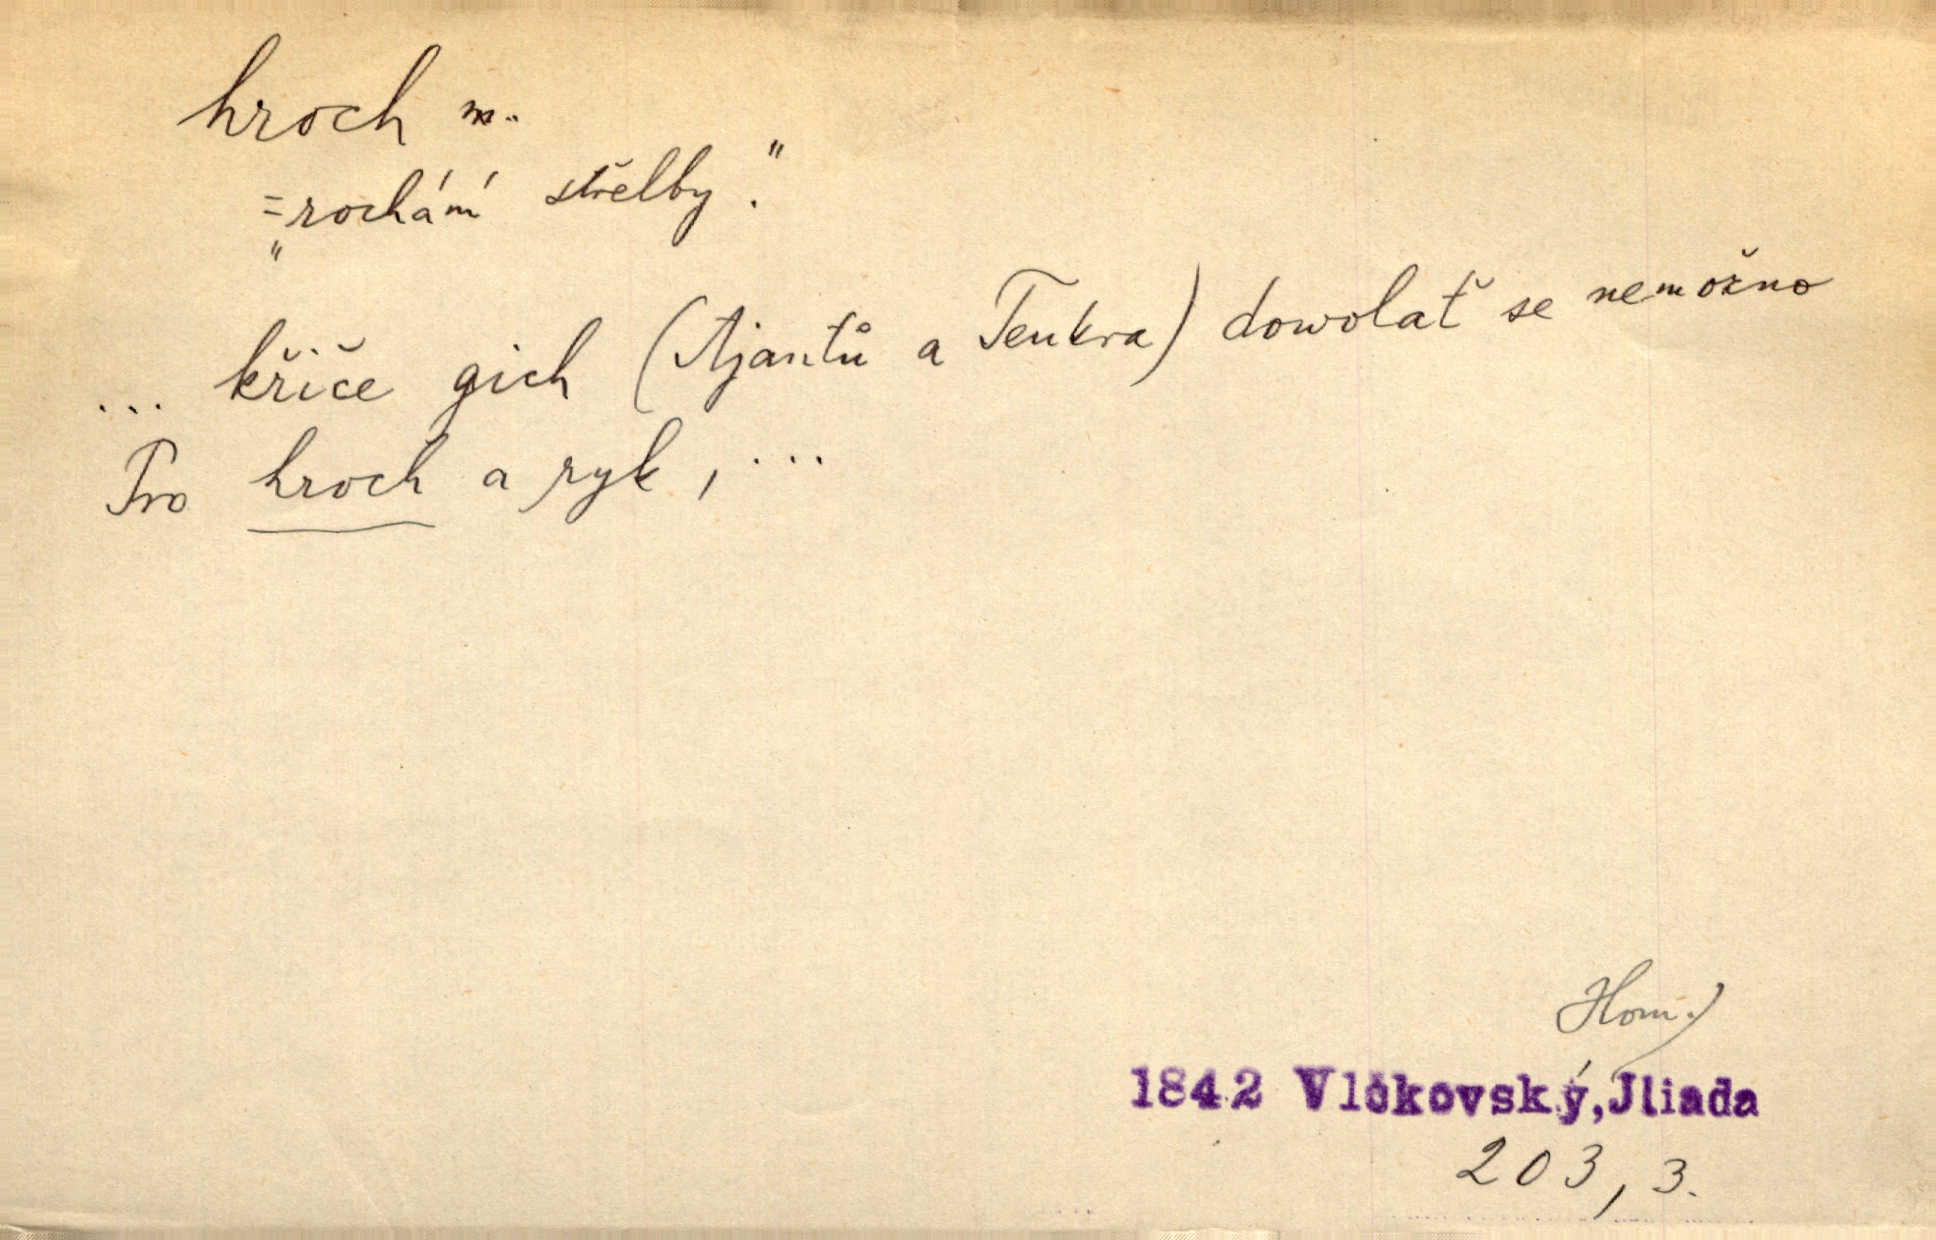 hroch m.
= „rochání střelby."
... křiče gich (Ajantů a Teukra) dowolať se nemožno
Pro hroch a ryk, ...
Hom.)
1842 Vlčkovský, Jliada
203, 3.